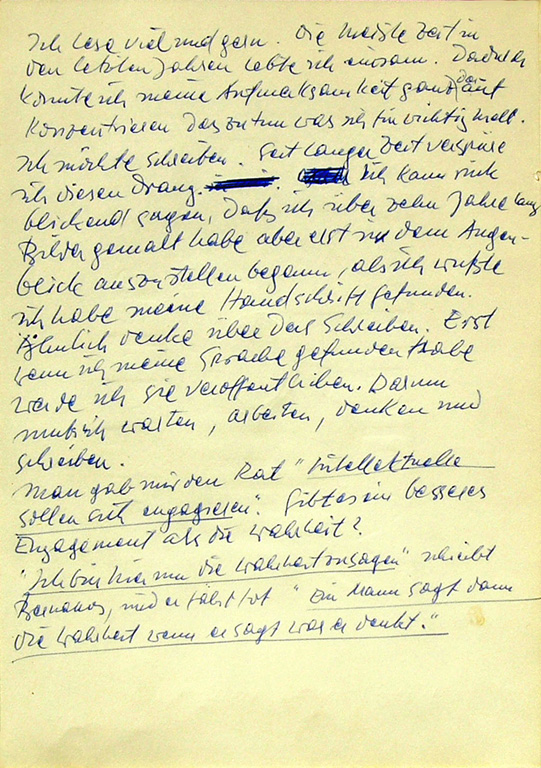 Ich lese viel und gern. Die meiste Zeit in
den letzten Jahren lebte ich einsam. Dadurch
konnte ich meine Aufmerksamkeit ganz darauf
konzentrieren das zu tun was ich für wichtig halt.
Ich möchte schreiben. Seit langer Zeit verspüre
ich diesen Drang. Ich kann rück
blickend sagen, daß ich über zehn Jahre lang
Bilder gemalt habe aber erst in dem Augen-
blick auszustellen begann, als ich wußte
ich habe meine Handschrift gefunden.
Ähnlich denke über das Schreiben. Erst
wenn ich meine Sprache gefunden habe
werde ich sie veröffentlichen. Darum
muß ich warten, arbeiten, denken und
schreiben.
Man gab mir den Rat "Intellektuelle
sollen sich engagieren". Gibt es ein besseres
Engagement als die Wahrheit?
"Ich bin hier um die Wahrheit zu sagen" schreibt
Bernanos, und er fährt fort "ein Mann sagt dann
die Wahrheit wenn er sagt was er denkt."